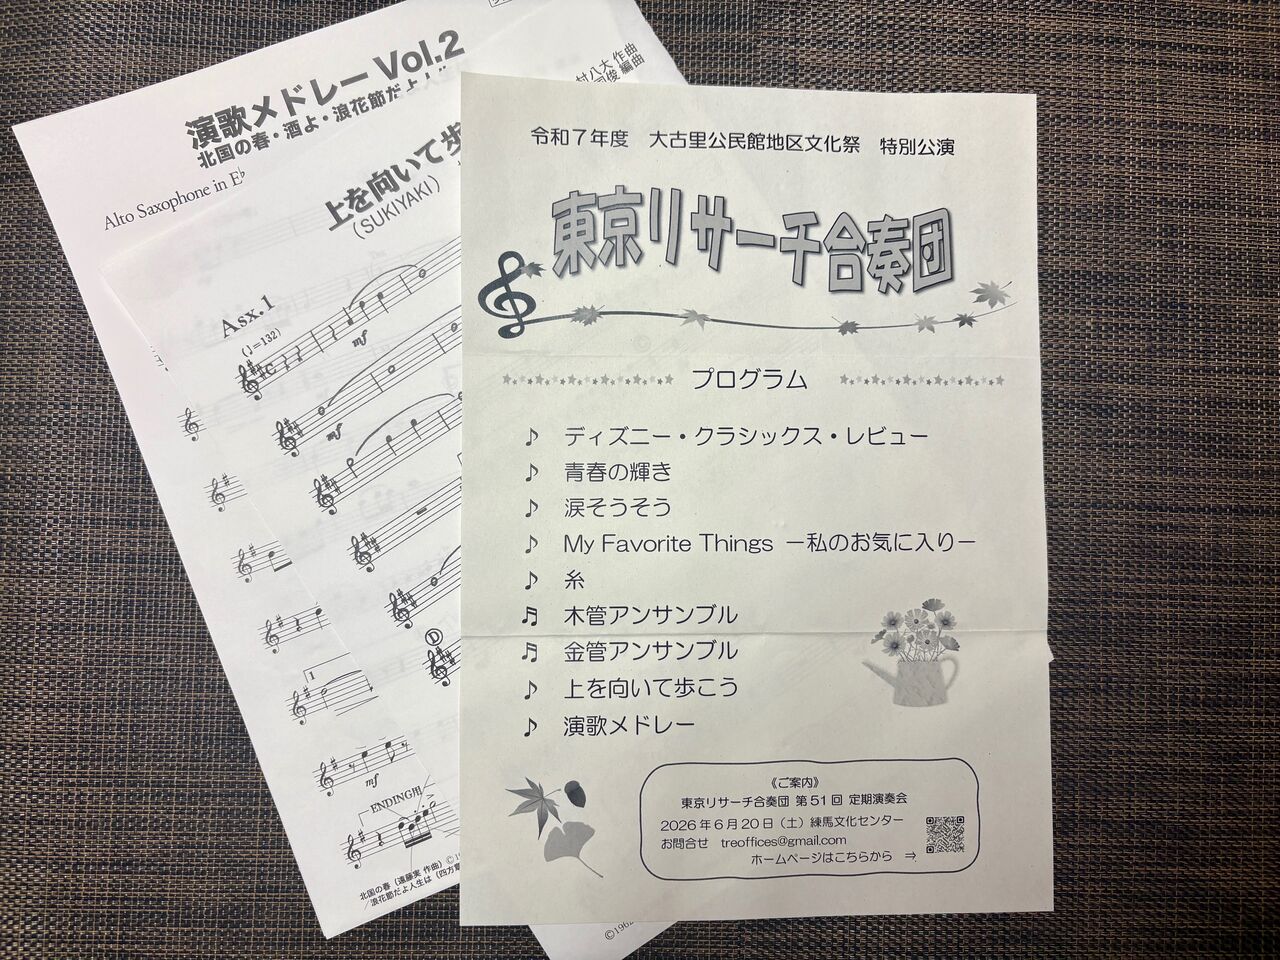 演歌メドレーVol.2
北国の春・酒よ・浪花節だよ人
Alto Saxophone in E♭
村八大 作曲
俊 編曲
上を向いて歩
(SUKIYAKI)
Asx.1
(♩=132)
mf
mf
D
1
mf
ENDING用
北国の春（遠藤実 作曲）©1
浪花節だよ人生は（四方章
©1962
令和7年度 大古里公民館地区文化祭 特別公演
東京リサーチ合奏団
プログラム
♪ ディズニー・クラシックス・レビュー
♪ 青春の輝き
♪ 涙そうそう
♪ My Favorite Things －私のお気に入り－
♪ 糸
♬ 木管アンサンブル
♬ 金管アンサンブル
♪ 上を向いて歩こう
♪ 演歌メドレー
《ご案内》
東京リサーチ合奏団 第51回 定期演奏会
2026年6月20日（土）練馬文化センター
お問合せ treoffices@gmail.com
ホームページはこちらから ⇒